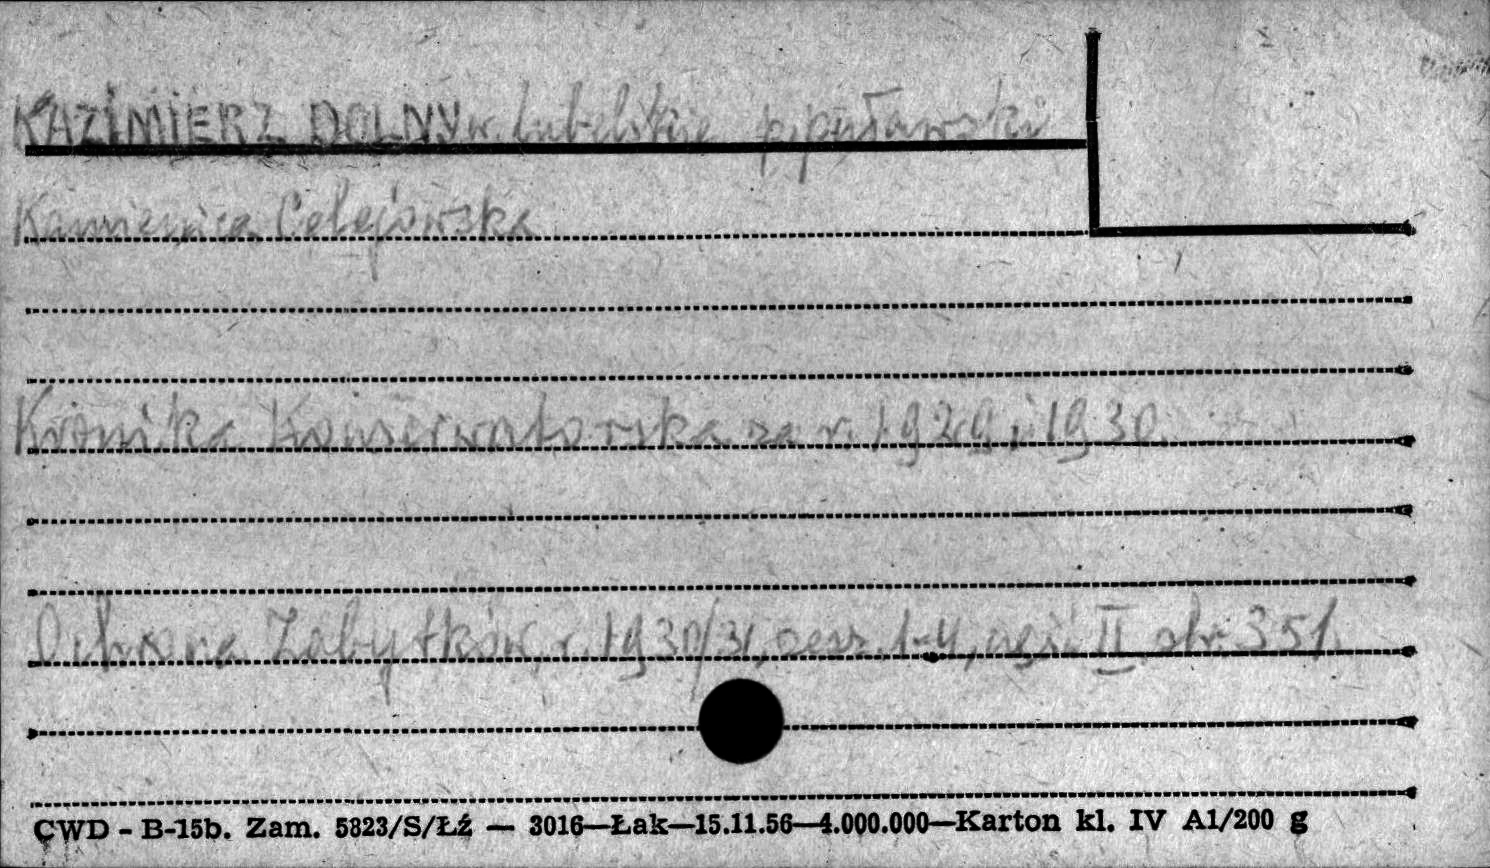 KAZIMIERZ DOLNY w. lubelskie p. puławski
Kamienica Celejowska
Kronika Konserwatorska za r. 1929 i 1930
Ochrona Zabytków, r. 1930/31, zesz. 1-4, część II str. 351.
CWD - B-15b. Zam. 5823/S/Łź — 3016—Łak—15.11.56—4.000.000—Karton kl. IV A1/200 g